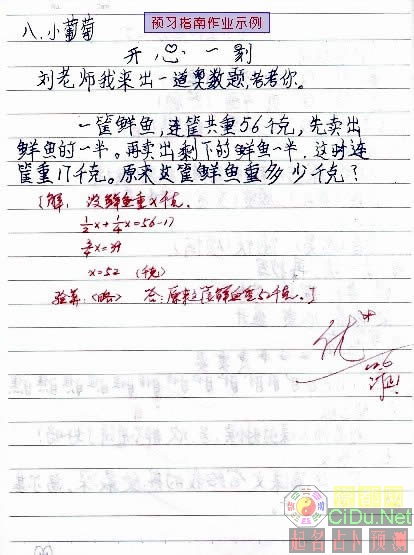 预习指南作业示例
八.小葡萄
开心一刻
刘老师我来出一道奥数题,考考你。
一筐鲜鱼,连筐共重56千克,先卖出
鲜鱼的一半。再卖出剩下的鲜鱼一半,这时连
筐重17千克。原来这筐鲜鱼重多少千克?
[解:设鲜鱼重x千克.
1/2x+1/4x=56-17
3/4x=39
x=52 (千克)
验算:(略) 答:原来这筐鲜鱼重52千克.]
优
CiDu.Net
起名占卜预测